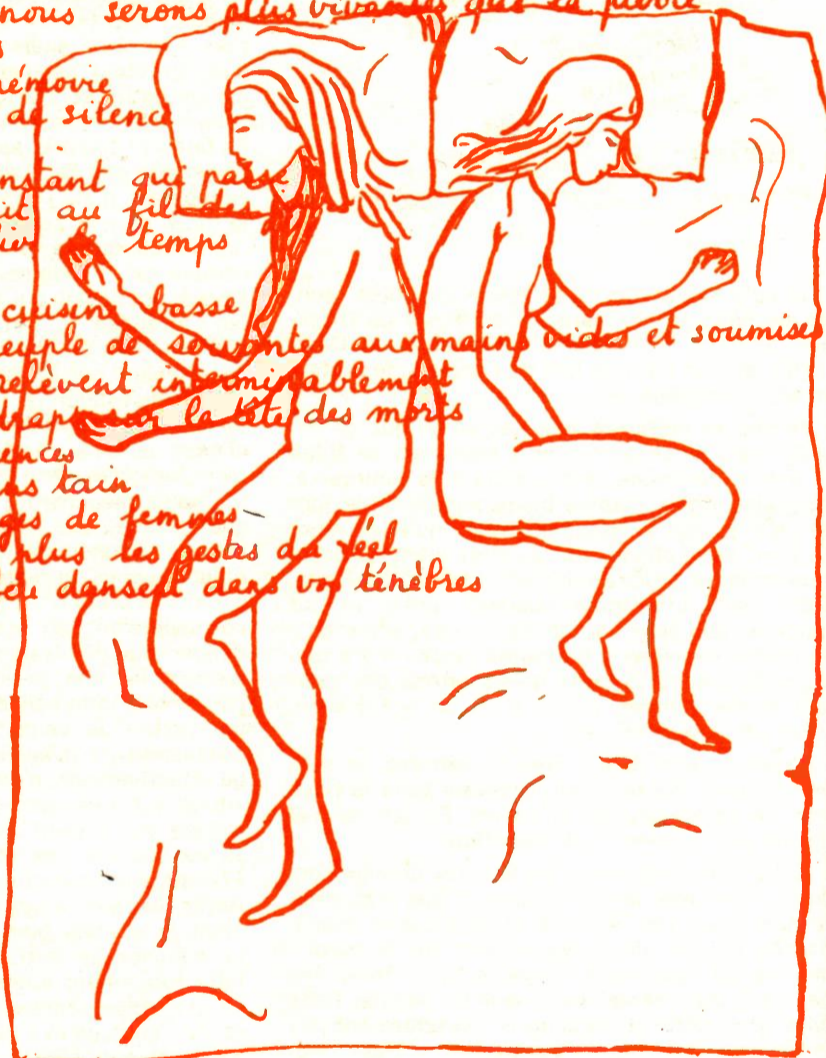 nous serons plus vivantes que la pierre
s
émoire
de silence
nstant qui passe
it au fil des
le temps
cuisine basse
euple de servantes aux mains vides et soumises
relèvent interminablement
draps sur la tête des morts
ences
ns tain
ges de femmes
plus les gestes du réel
eu dansent dans vos ténèbres